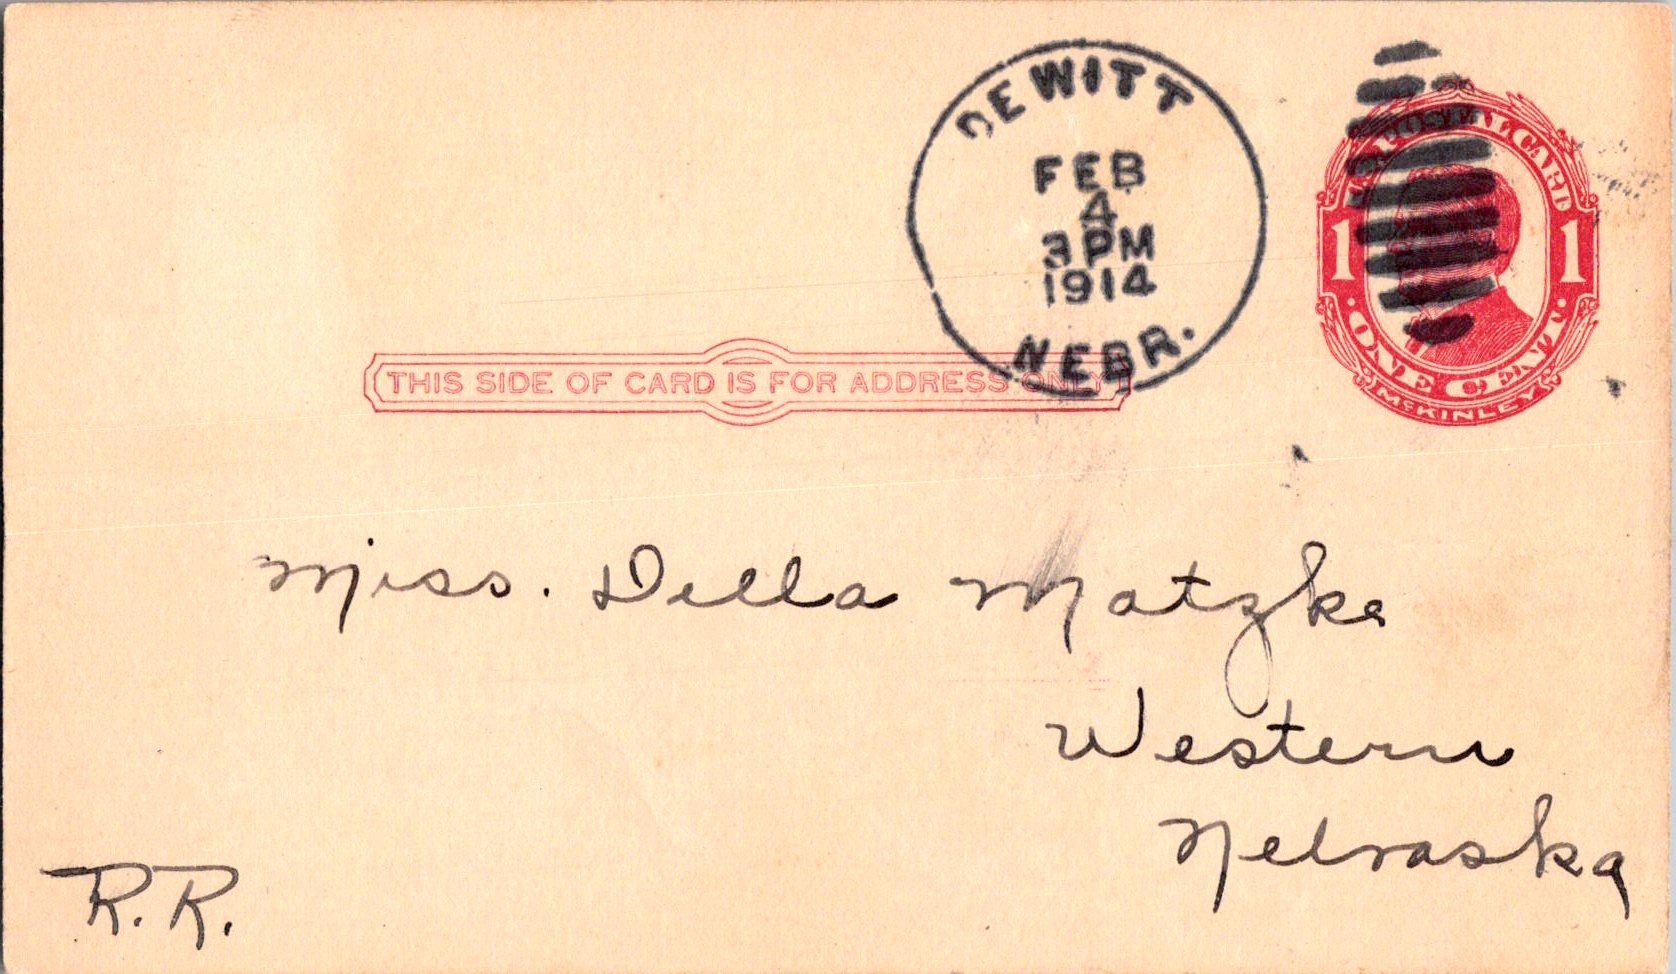 DEWITT
FEB
4
3 PM
1914
NEBR.
U.S. POSTAL CARD
1 1
ONE CENT
McKINLEY
THIS SIDE OF CARD IS FOR ADDRESS ONLY
Miss. Della Matzke
Western
Nebraska
R.R.